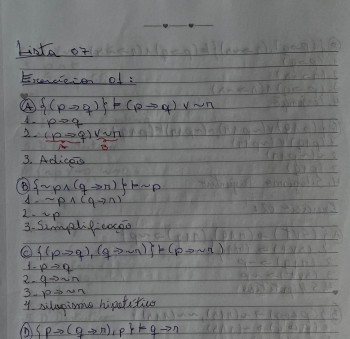 Lista 07
Exercícios 01:
A) {(p→q)} ⊨ (p→q) ∨ ~r
1- p→q
2- (p→q) ∨ ~r
A B
3. Adição
B) {~p ∧ (q→r)} ⊨ ~p
1- ~p ∧ (q→r)
2- ~p
3- Simplificação
C) {(p→q), (q→~r)} ⊨ (p→~r)
1- p→q
2- q→~r
3- p→~r
4. silogismo hipotético
D) {p→(q→r), p} ⊨ q→r